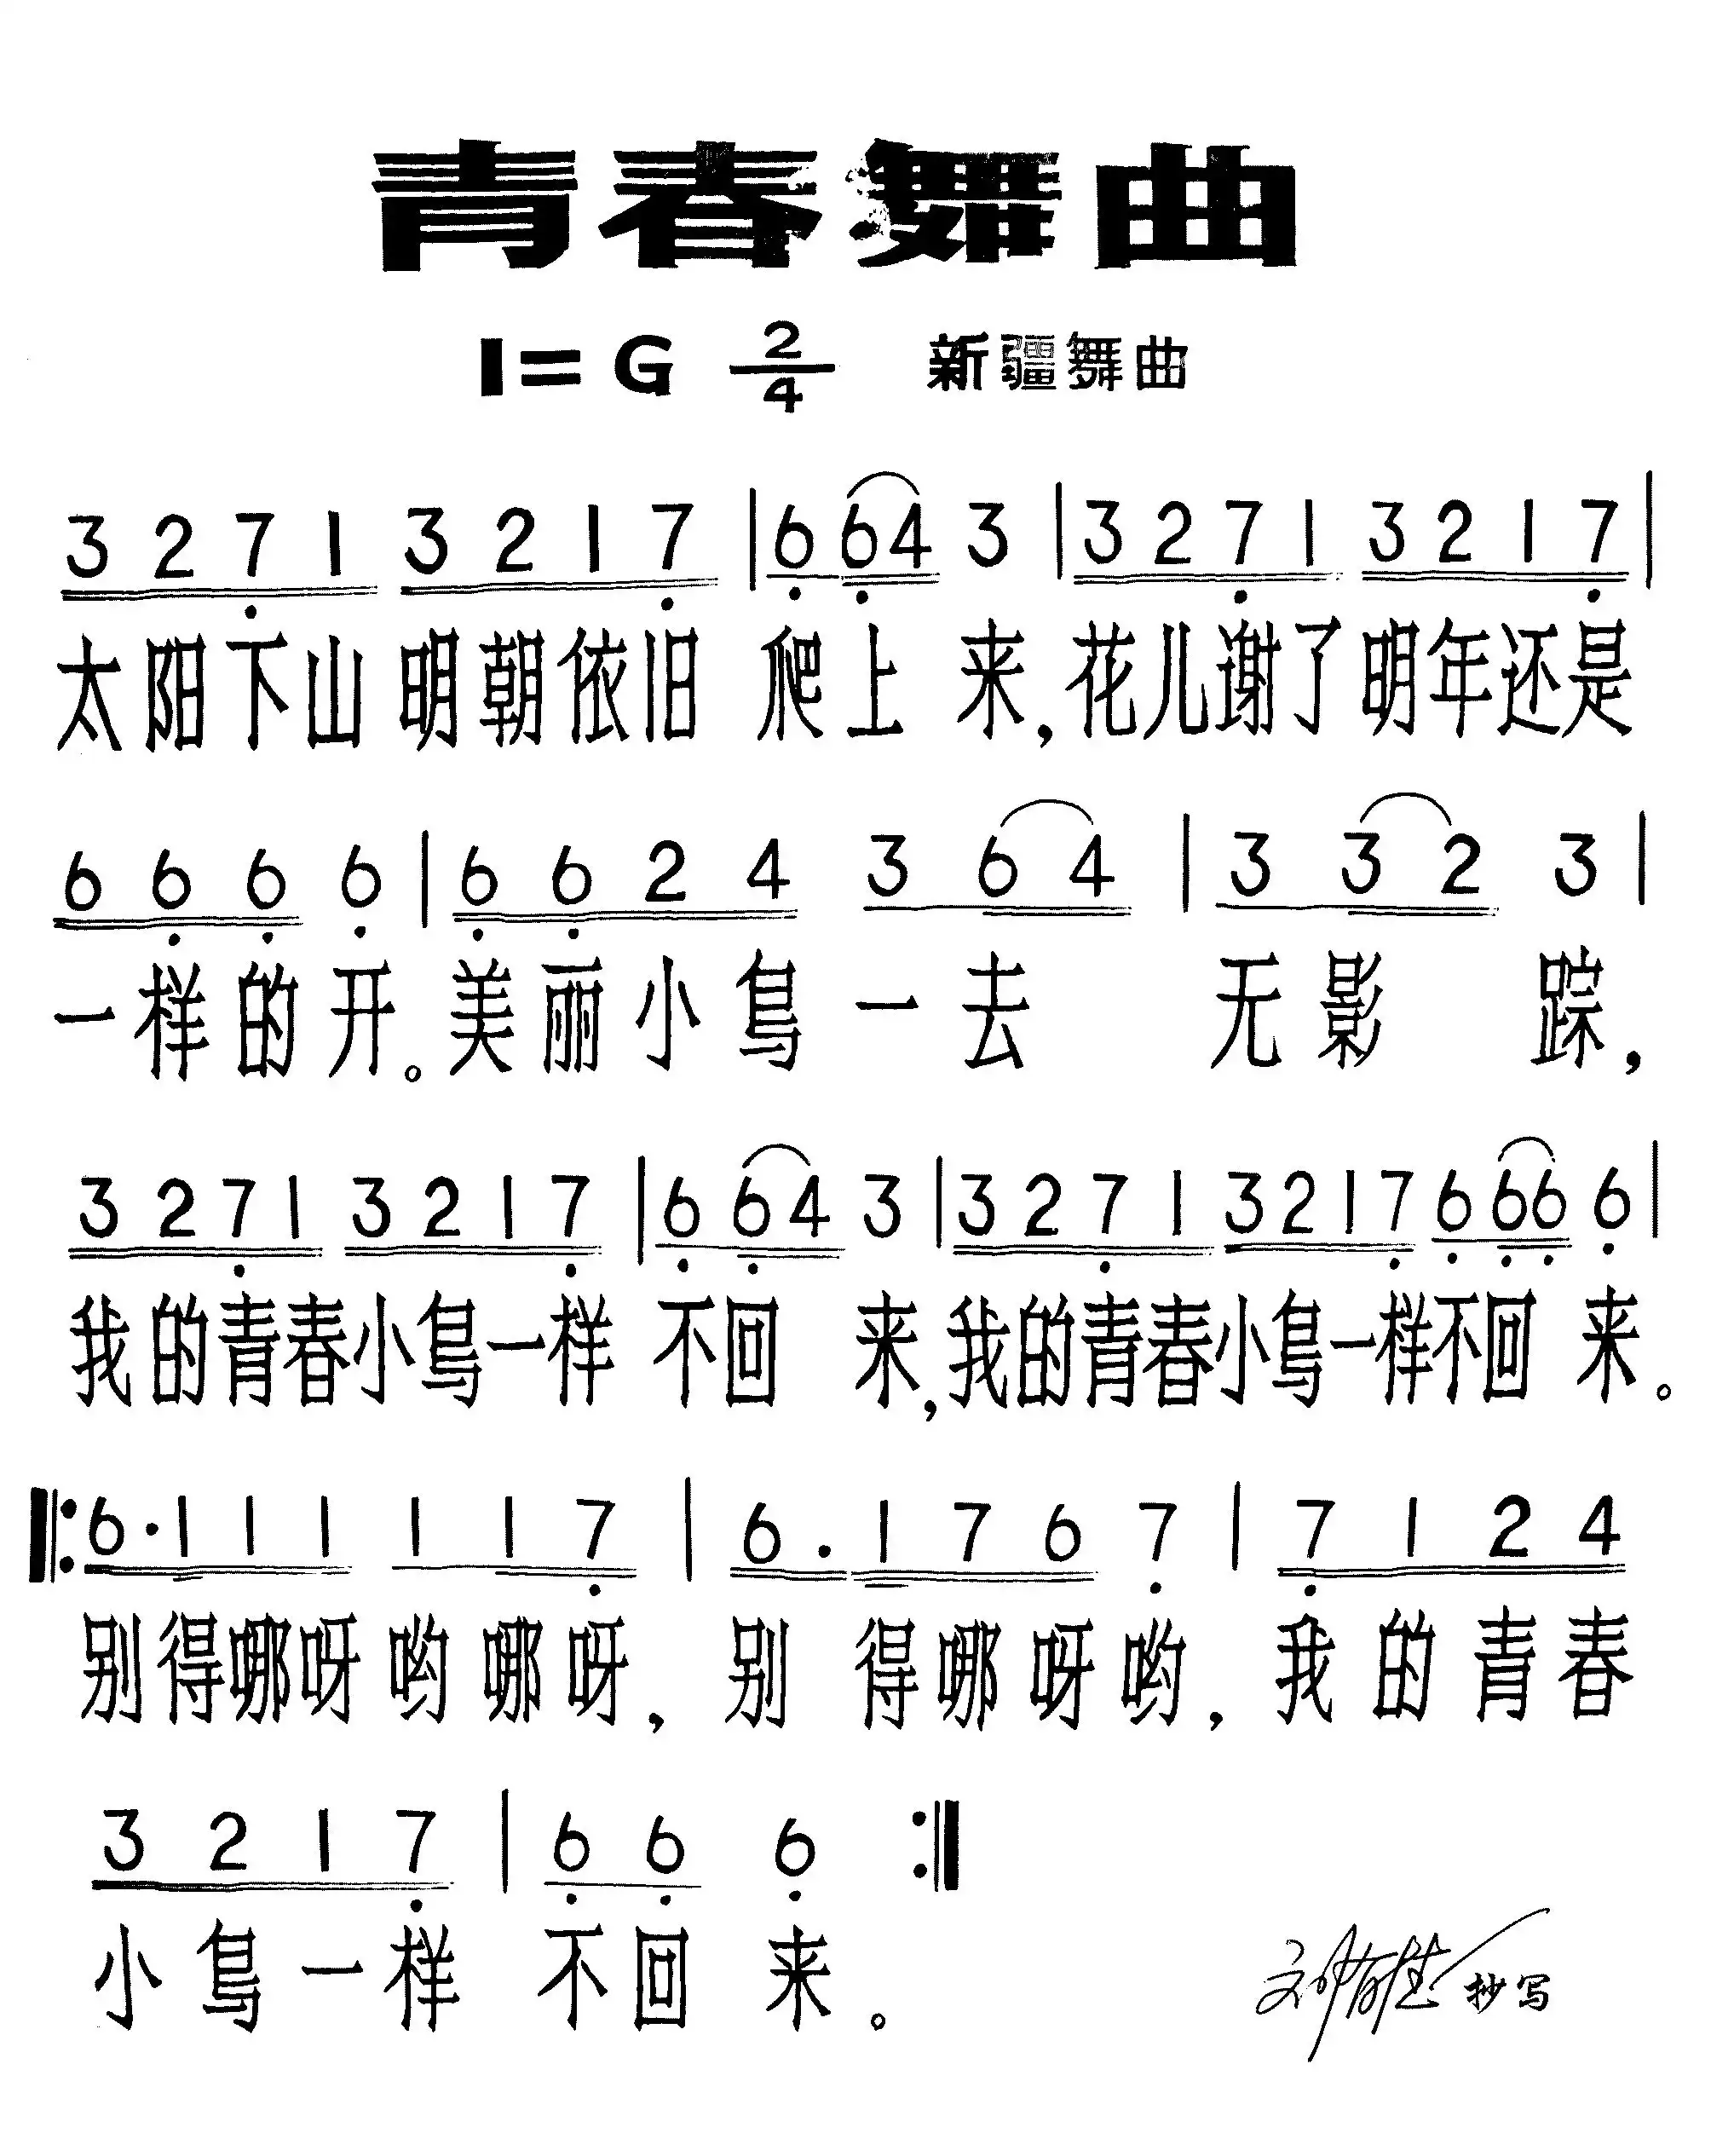 青春舞曲
1=G 2/4 新疆舞曲
3 2 7 1 3 2 1 7 | 6 6 4 3 | 3 2 7 1 3 2 1 7 |
太阳下山明朝依旧 爬上 来，花儿谢了明年还是
6 6 6 6 | 6 6 2 4 3 6 4 | 3 3 2 3 |
一样的开。美丽小鸟一去 无影 踪，
3 2 7 1 3 2 1 7 | 6 6 4 3 | 3 2 7 1 3 2 1 7 6 6 6 6 |
我的青春小鸟一样 不回 来，我的青春小鸟一样不回 来。
‖: 6 · 1 1 1 1 1 7 | 6 · 1 7 6 7 | 7 1 2 4
别得哪呀哟哪呀，别 得哪呀哟，我的青春
3 2 1 7 | 6 6 6 :‖
小鸟一样 不回 来。
抄写